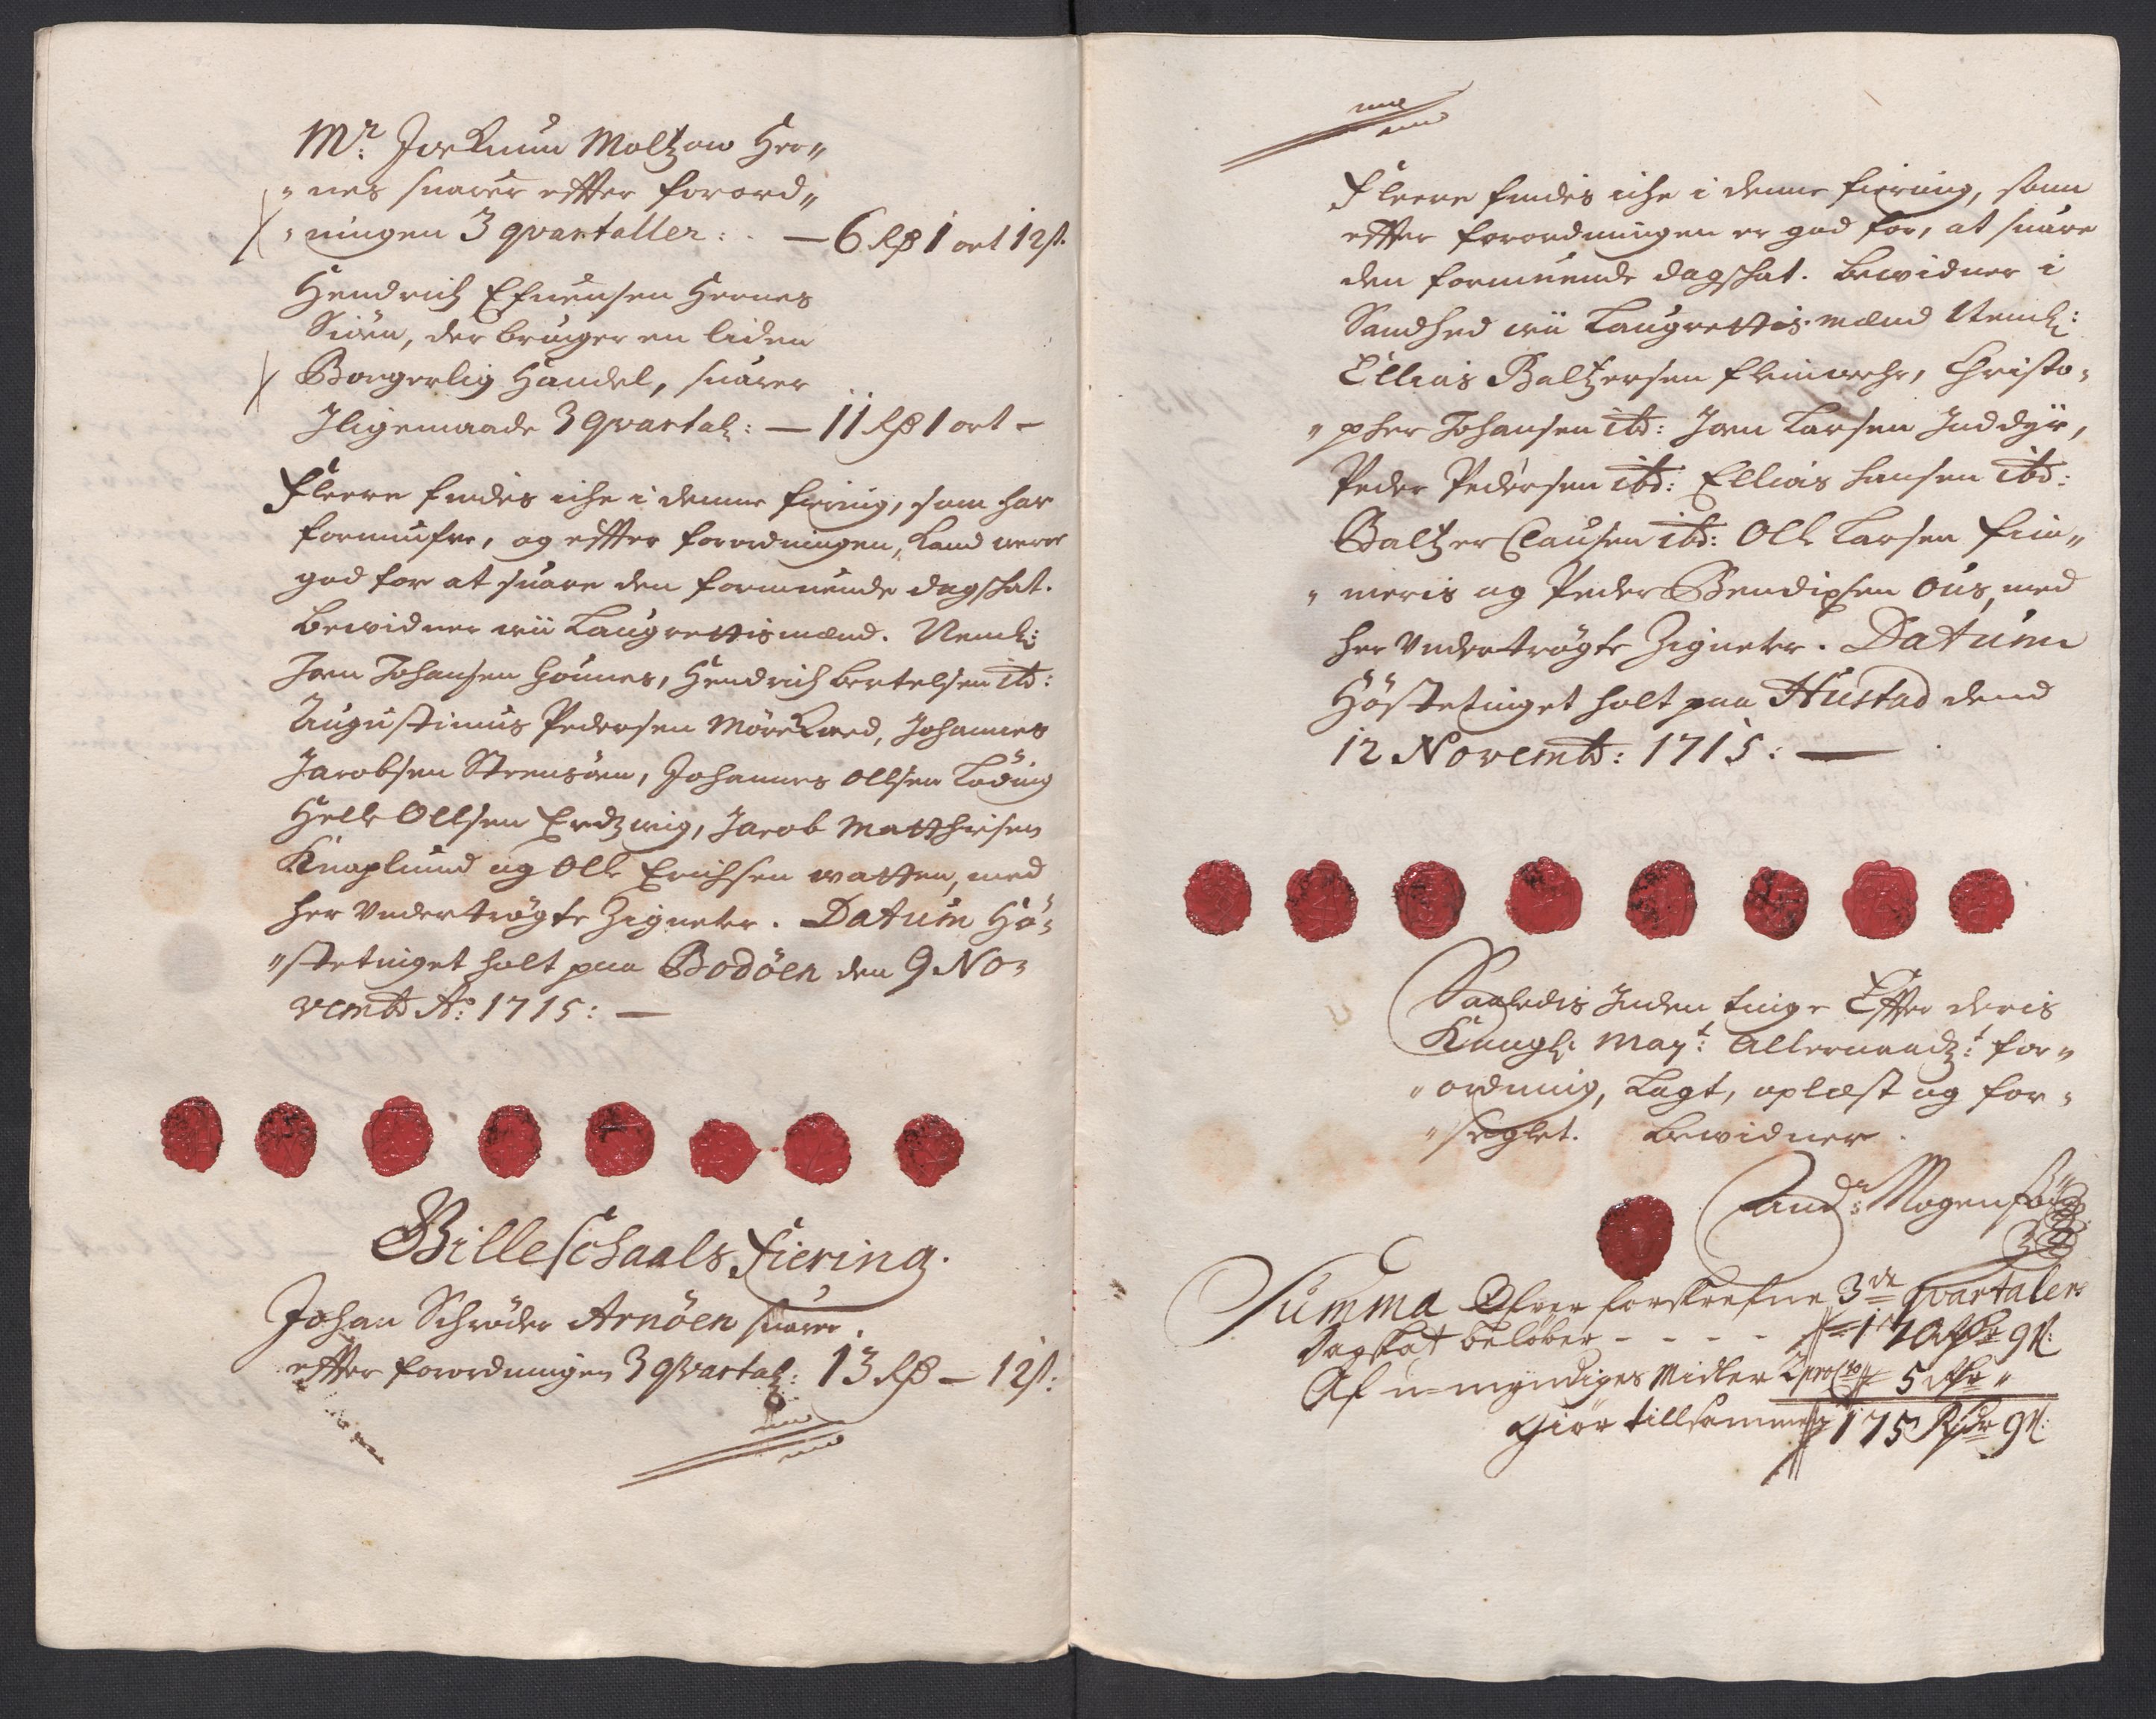 Mr. Jockum Moltzow Her„
„nes suarer effter forord„
„ningen 3 qvartaller: — 6 Rß 1 ort 12 s.
Hendrich Efuensen Hernes
Siøen, der bruger en liden
Borgerlig Handel, suarer
Jligemaade 3 qvartal: — 11 Rß 1 ort –
Fleere findes iche i denne fiering, som har
formufve, og effter forordningen, kand were
god for at suare den formuende dagschat.
Bewidner wii Laugrettismænd. Neml:
Jon Johansen Hounes, Hendrich Bertelsen ibd:
Augustinus Pedersen Mørckved, Johannes
Jacobsen Strensøen, Johannes Ollsen Løding
Helle Ollsen Erdzwig, Jacob Matthisen
Knaplund og Olle Erichsen Watten, med
her Vndertrøgte Zigneter. Datum Hø„
„stetinget holt paa Bodöen den 9 No„
vembr Ao: 1715: —
Billeschaals Fiering.
Johan Schrøder Arnöen suarer
effter forordningen 3 qvartal: 13 Rß – 12 s:
Fleere findes iche i denne fiering, som
effter forordningen er god for, at suare
den formuende dagschat. Bewidner i
Sandhed wii Laugrettis mænd Neml:
Ellias Baltzersen Fleinwehr, Christo„
„pher Johansen ibd: Jon Larsen Inddyr,
Peder Pedersen ibd: Ellias Hansen ibd:
Baltzer Clausen ibd: Olle Larsen Fin„
„neris og Peder Bendixsen Øus, med
her Vndertrøgte Zigneter. Datum
Høstetinget holt paa Hustad dend
12 Novembr: 1715: —
Saaledis Inden tinge Effter deris
Kongl: Mayt: Allernaadzt: for„
„ordning, Lagt, oplæst og for„
„seglet. Bewidner
And: Mogens
Summa Ofver forskrefne 3de Qvartalers
Dagskat beløber - - - - 170 Rdr 9 s:
Af u-myndiges Midler 2 pro Cto 5 Rdr „
Giør tillsammen 175 Rdr 9 s: